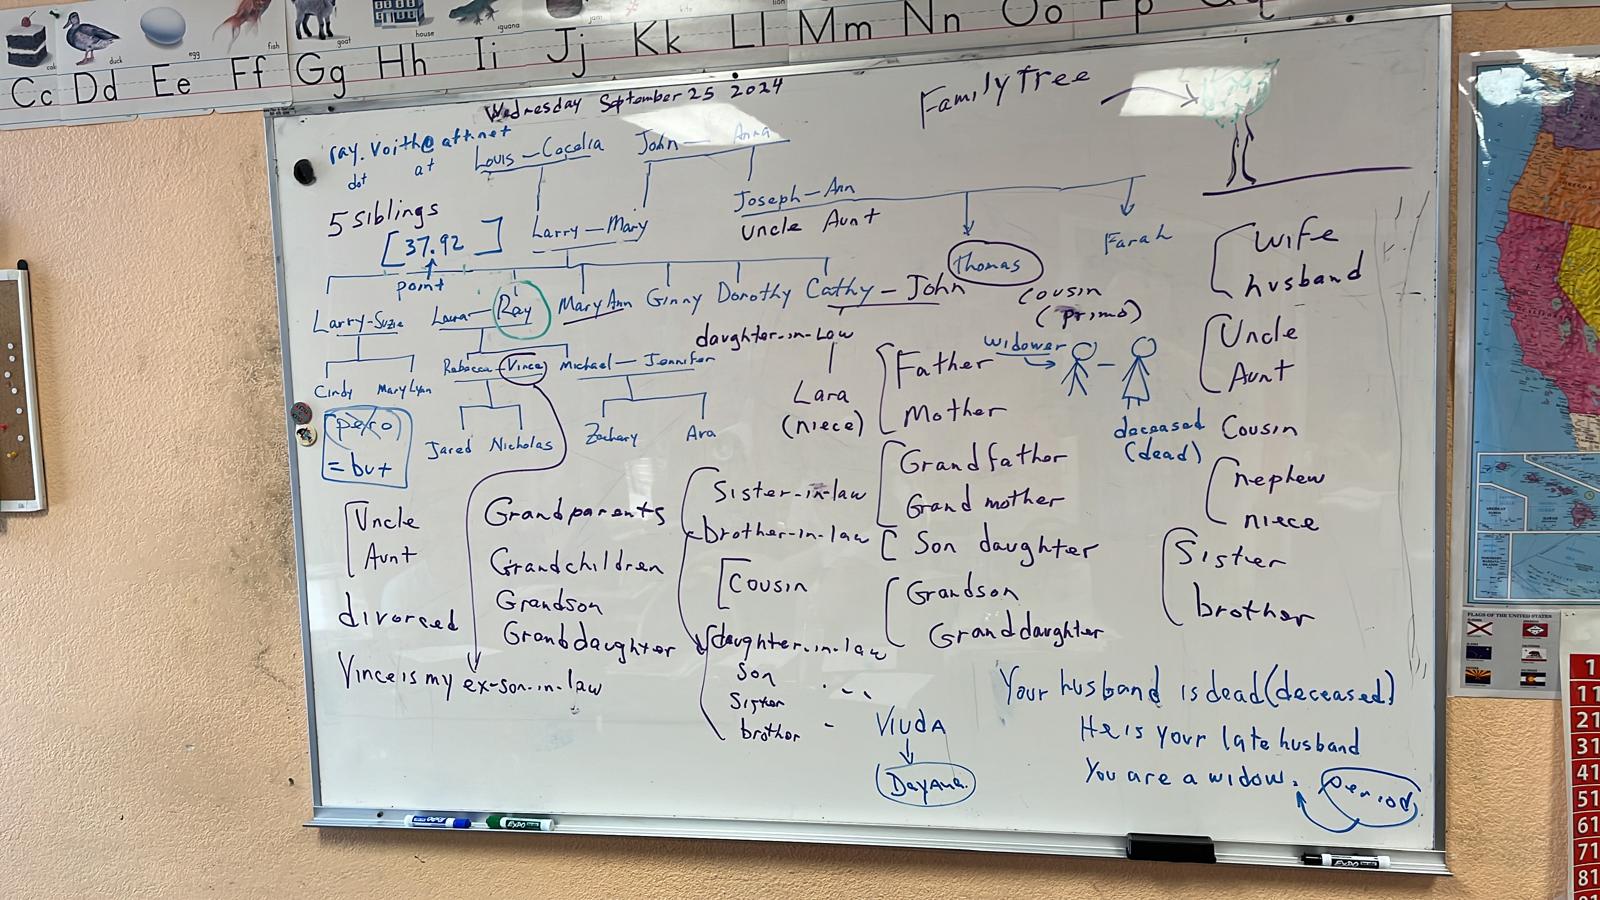 cake
duck
egg
fish
goat
house
iguana
jam
Cc Dd Ee Ff Gg Hh Ii Jj Kk Ll Mm Nn Oo Pp Qq
Wednesday September 25 2024
Family tree
ray.voith@att.net
dot at
Louis — Cecelia
John — Anna
5 siblings
[37.92]
point
Larry — Mary
Joseph — Ann
Uncle Aunt
Thomas
Farah
cousin
(primo)
Larry — Suzie
Laura — Ray
Mary Ann Ginny Dorothy Cathy — John
daughter-in-Law
Cindy Mary Lynn
Rebecca — Vince
Michael — Jennifer
Jared Nicholas
Zachary Ava
Lara
(niece)
pero
= but
widower
deceased
(dead)
Father
Mother
Grandfather
Grand mother
Son daughter
Grandson
Granddaughter
Wife
husband
Uncle
Aunt
Cousin
nephew
niece
Sister
brother
Uncle
Aunt
divorced
Vince is my ex-son-in-law
Grandparents
Grandchildren
Grandson
Granddaughter
Sister-in-law
brother-in-law
Cousin
daughter-in-law
Son
Sister
brother
VIUDA
Dayana
Your husband is dead (deceased)
He is your late husband
You are a widow.
period
EXPO
EXPO
EXPO
FLAGS OF THE UNITED STATES
1
11
21
31
41
51
61
71
81